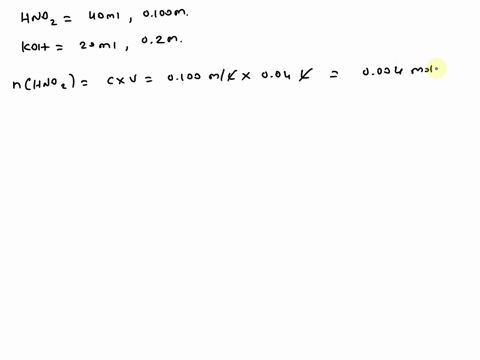 HNO2 = 40ml, 0.100m.
KOH = 20ml, 0.2m.
n(HNO2) = c×v = 0.100 m/L × 0.04 L = 0.004 mol.